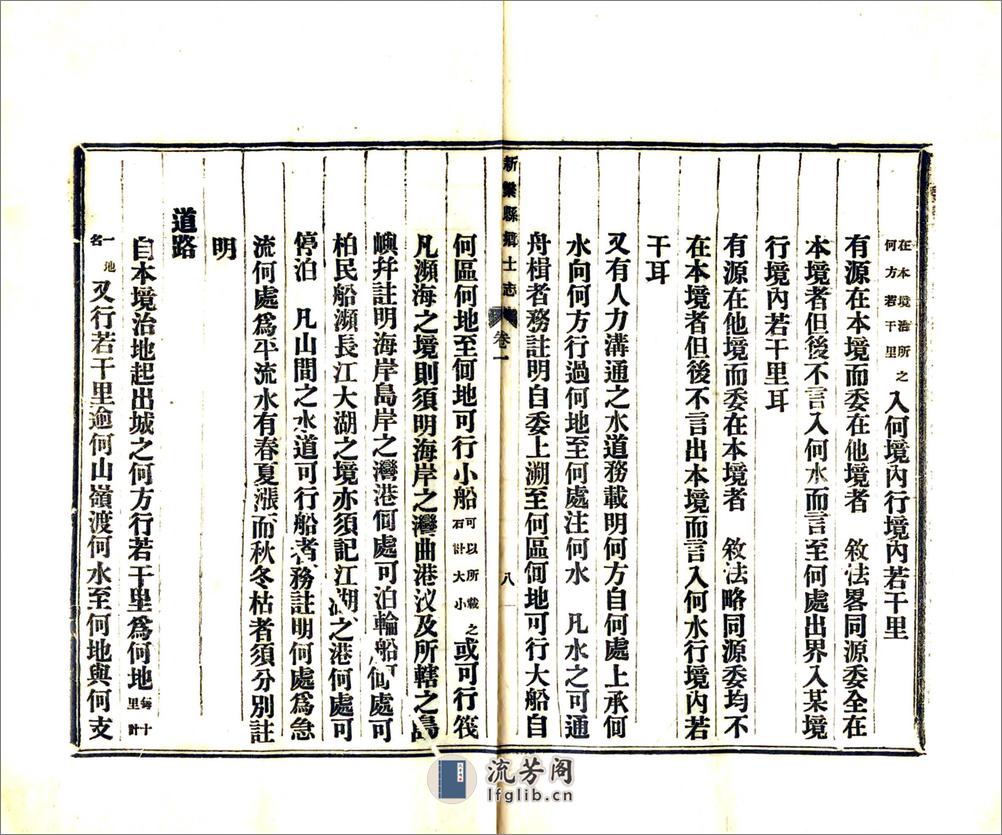 在本境治所之何方若干里入何境內行境內若干里
有源在本境而委在他境者　敘法畧同源委全在
本境者但後不言入何水而言至何處出界入某境
行境內若干里耳
有源在他境而委在本境者　敘法略同源委均不
在本境者但後不言出本境而言入何水行境內若
干耳
又有人力溝通之水道務載明何方自何處上承何
水向何方行過何地至何處注何水　凡水之可通
舟楫者務註明自委上溯至何區何地可行大船自
新樂縣鄉土志　卷一　八
何區何地至何地可行小船可以所載之石計大小或可行筏
凡瀕海之境則須明海岸之灣曲港汊及所轄之島
嶼幷註明海岸島岸之灣港何處可泊輪船何處可
柏民船瀕長江大湖之境亦須記江湖之港何處可
停泊　凡山間之水道可行船者務註明何處爲急
流何處爲平流水有春夏漲而秋冬枯者須分別註
明
道路
自本境治地起出城之何方行若干里爲何地每十里計
一地名又行若干里逾何山嶺渡何水至何地與何支
流芳阁
lfglib.cn